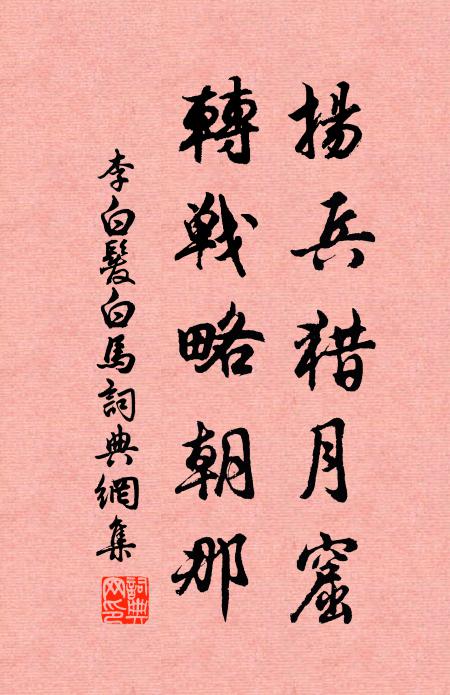 揚兵猎月窟
轉戦略朝那
李白發白馬詞典網集
詞典網印